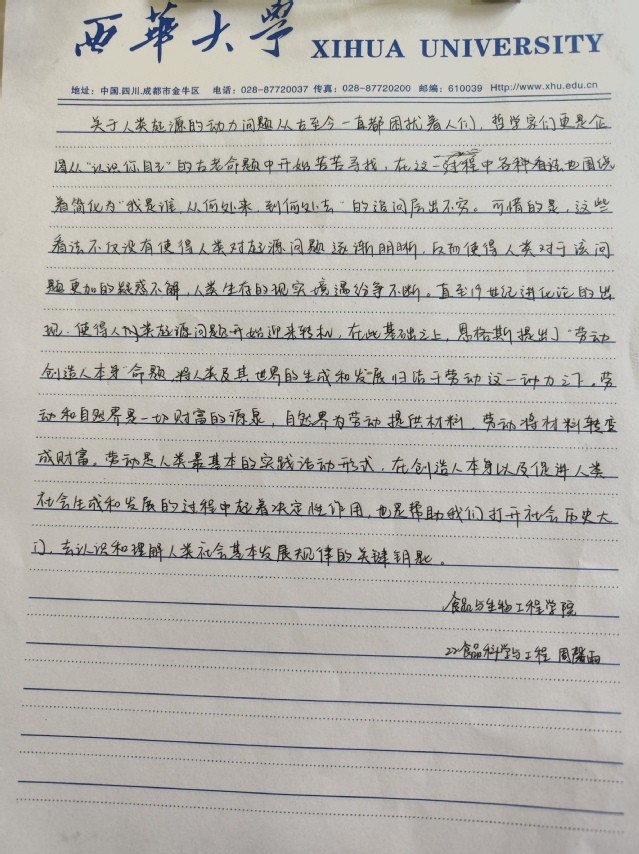 西華大學 XIHUA UNIVERSITY
地址：中国.四川.成都市金牛区 电话：028-87720037 传真：028-87720200 邮编：610039 Http://www.xhu.edu.cn
关于人类起源的动力问题从古至今一直都困扰着人们，哲学家们更是企
图从"认识你自己"的古老命题中开始苦苦寻找，在这一过程中各种看法也围绕
着简化为"我是谁，从何处来，到何处去"的追问层出不穷。可惜的是，这些
看法不仅没有使得人类对起源问题逐渐明晰，反而使得人类对于该问
题更加的疑惑不解，人类生存的现实境遇纷争不断。直至19世纪进化论的出
现，使得人类起源问题开始迎来转机，在此基础之上，恩格斯提出了"劳动
创造人本身"命题，将人类及其世界的生成和发展归结于劳动这一动力之下。劳
动和自然界是一切财富的源泉，自然界为劳动提供材料，劳动将材料转变
成财富。劳动是人类最基本的实践活动形式，在创造人本身以及促进人类
社会生成和发展的过程中起着决定性作用，也是帮助我们打开社会历史大
门，去认识和理解人类社会基本发展规律的关键钥匙。
食品与生物工程学院
22食品科学与工程 周馨雨